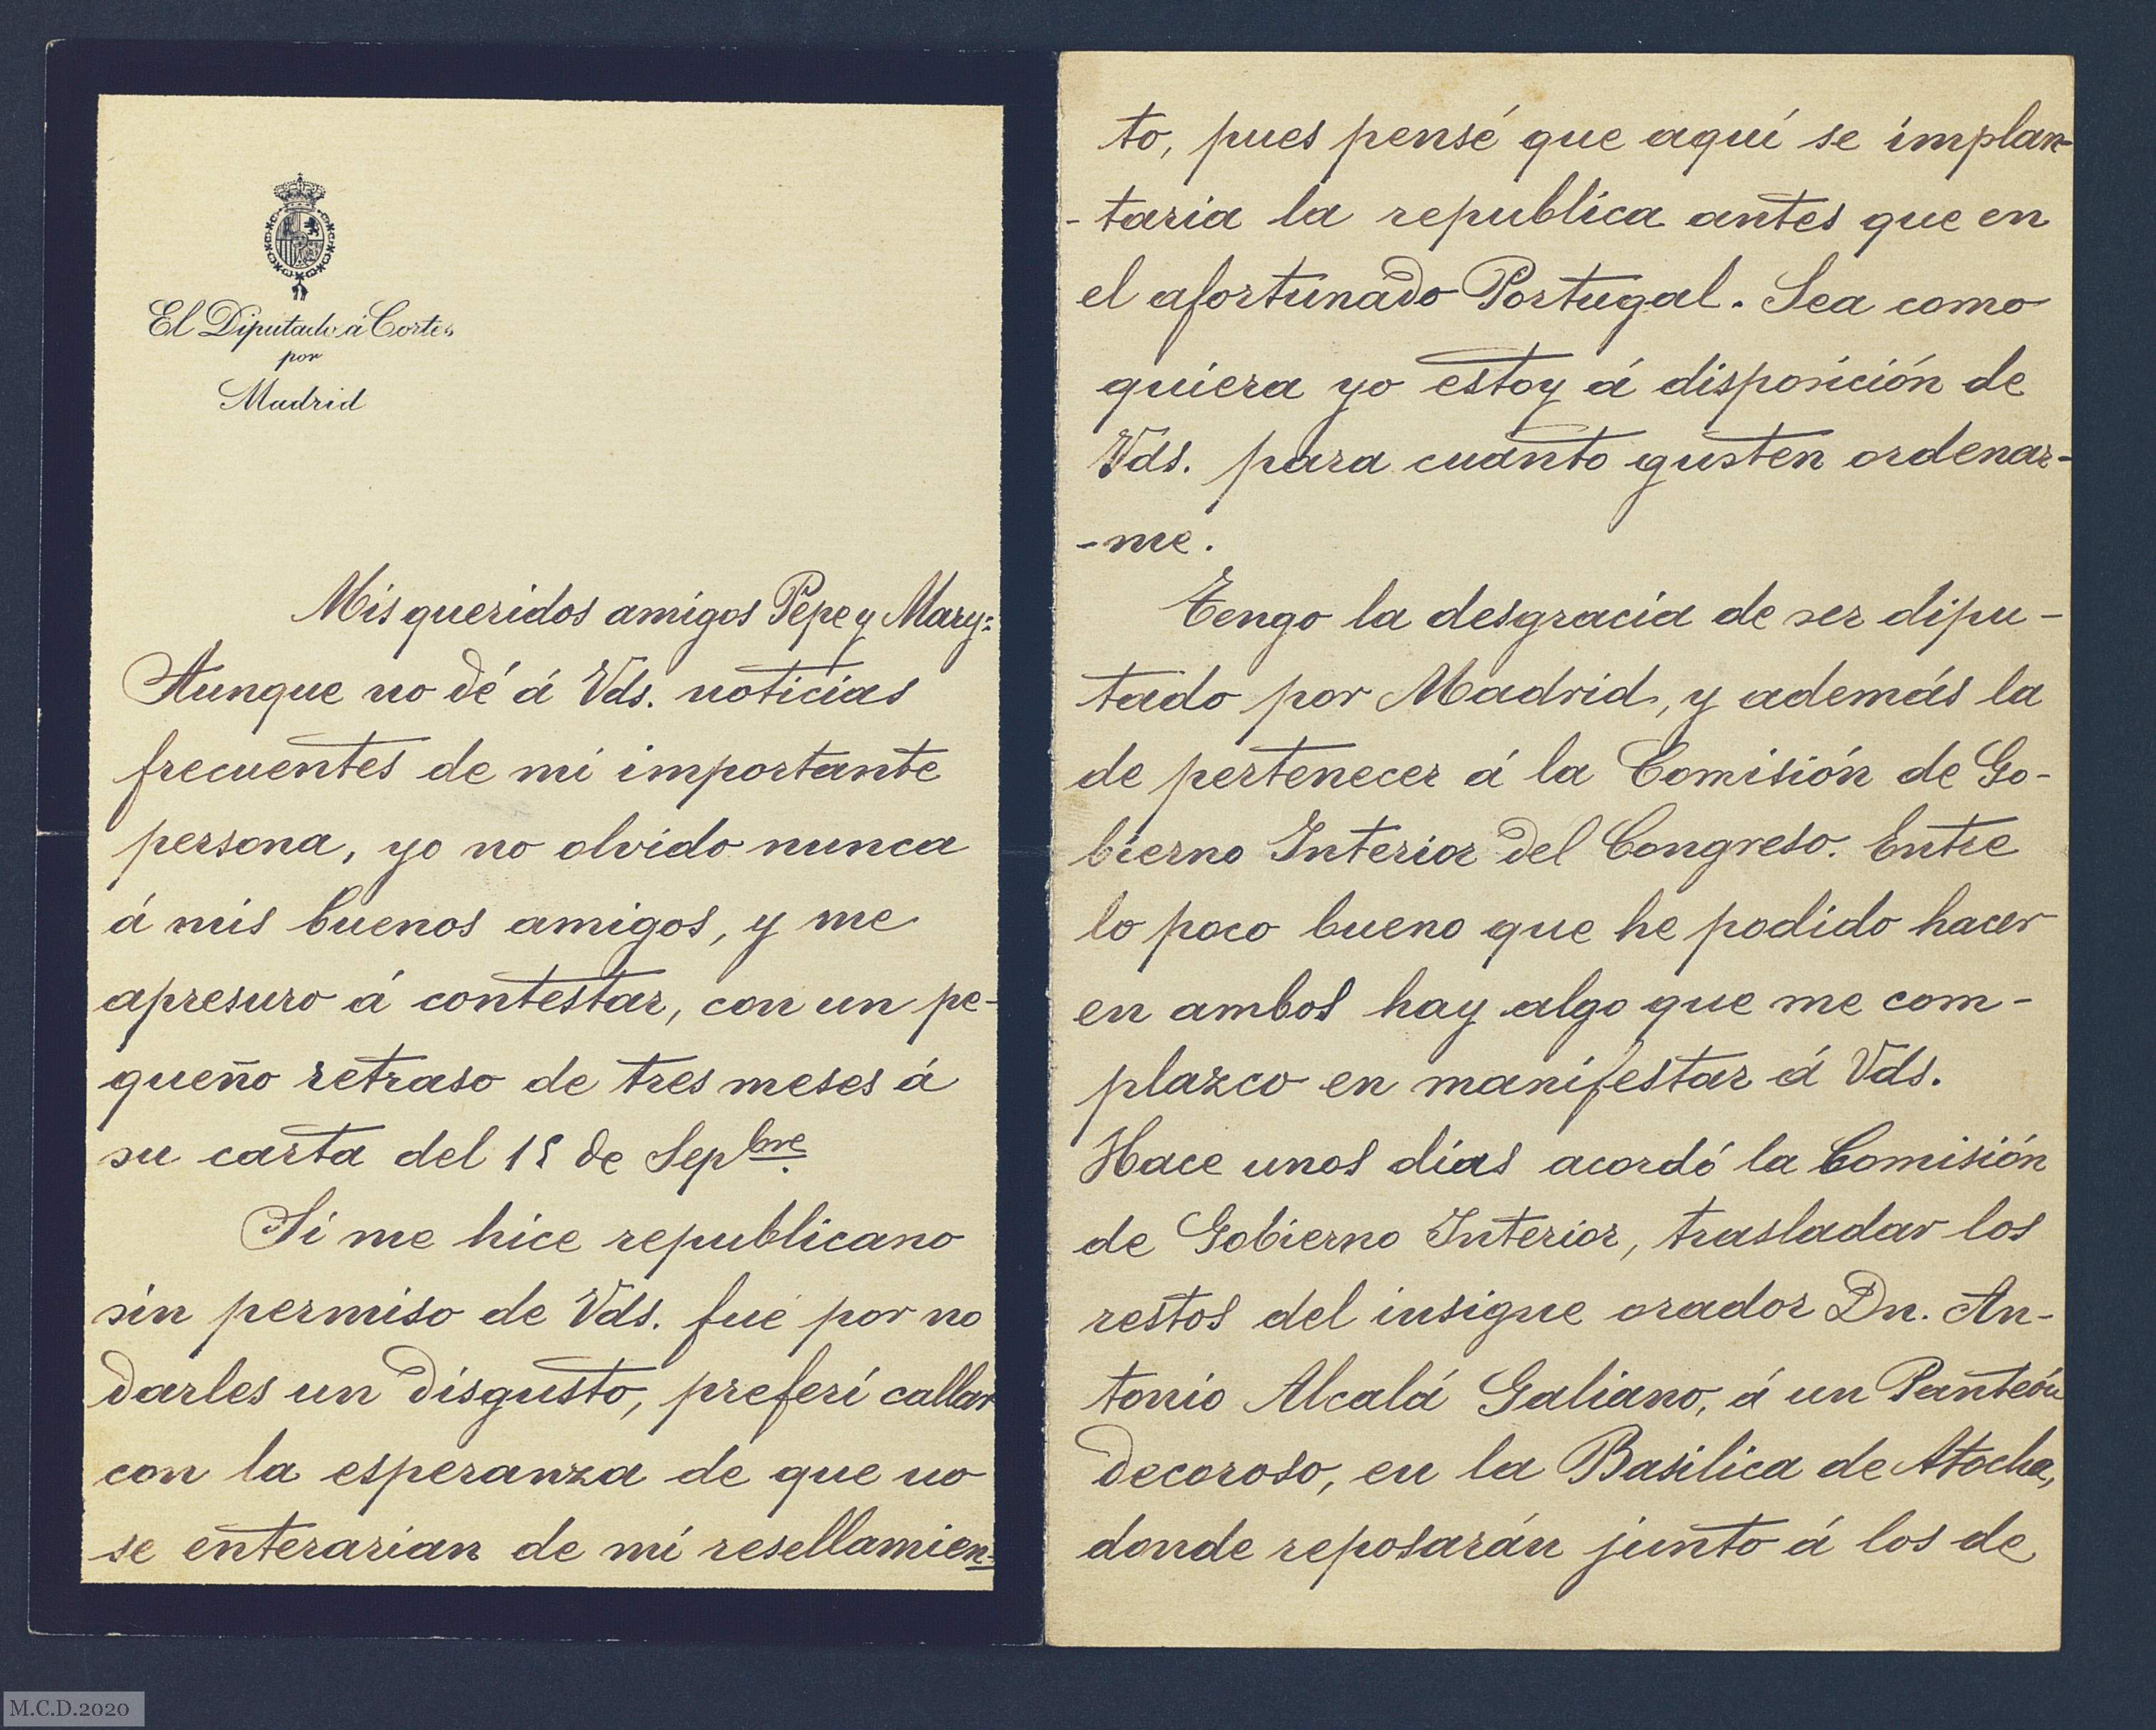 El Diputado á Cortes
por
Madrid
Mis queridos amigos Pepe y Mary:
Aunque no dé á Vds. noticias
frecuentes de mi importante
persona, yo no olvido nunca
á mis buenos amigos, y me
apresuro á contestar, con un pe-
queño retraso de tres meses á
su carta del 15 de Sepbre.
Si me hice republicano
sin permiso de Vds. fué por no
darles un disgusto, preferí callar
con la esperanza de que no
se enterarian de mi resellamien=
to, pues pensé que aquí se implan-
-taria la republica antes que en
el afortunado Portugal. Sea como
quiera yo estoy á disposición de
Vds. para cuanto gusten ordenar-
-me.
Tengo la desgracia de ser dipu-
tado por Madrid, y además la
de pertenecer á la Comisión de Go-
bierno Interior del Congreso. Entre
lo poco bueno que he podido hacer
en ambos hay algo que me com-
plazco en manifestar á Vds.
Hace unos días acordó la Comisión
de Gobierno Interior, trasladar los
restos del insigne orador Dn. An-
tonio Alcalá Galiano, á un Panteón
decoroso, en la Basilica de Atocha,
donde reposarán junto á los de
M.C.D.2020